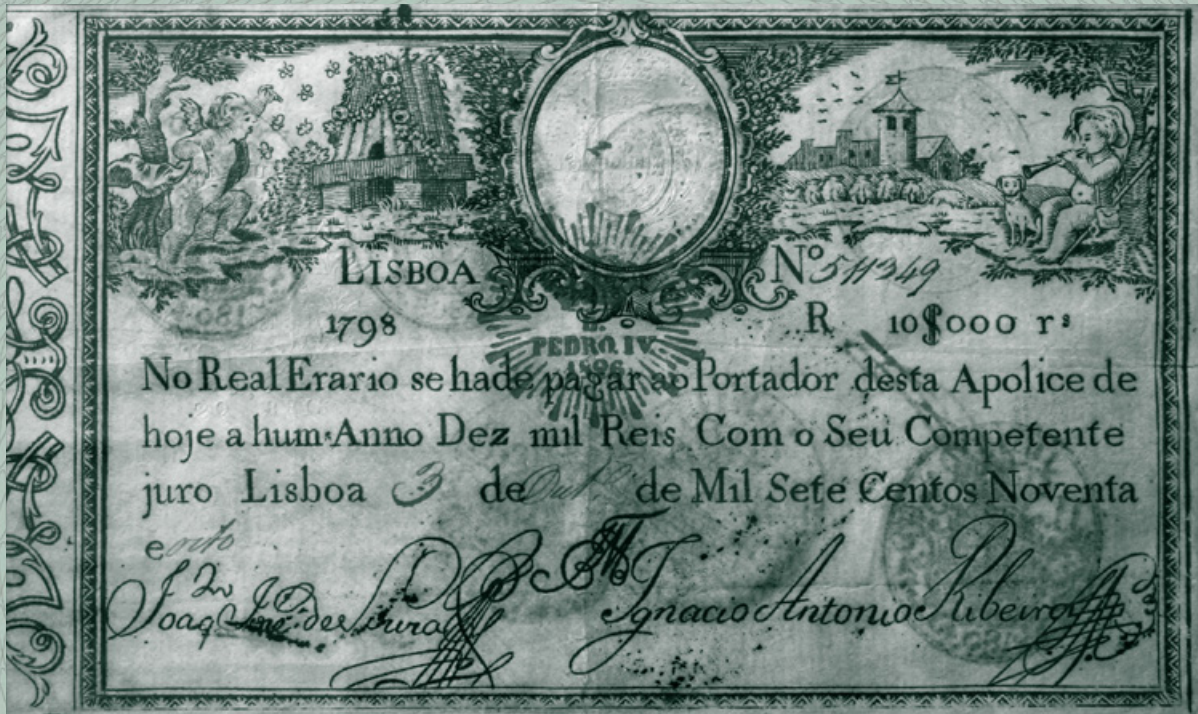 LISBOA Nº 511349
1798 R 10$000 rˢ
PEDRO. IV.
1826
No Real Erario se hade pagar ao Portador desta Apolice de
hoje a hum Anno Dez mil Reis Com o Seu Competente
juro Lisboa 3 de Outº de Mil Sete Centos Noventa
e oito
Ignacio Antonio Ribeiro